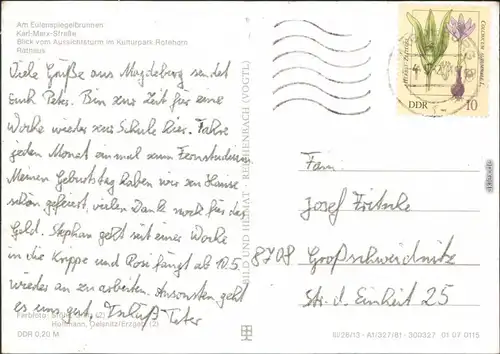 Am Eulenspiegelbrunnen
Karl-Marx-Straße
Blick vom Aussichtsturm im Kulturpark Rotehorn
Rathaus
Viele Grüße aus Magdeburg sendet
Euch Peter. Bin zur Zeit für eine
Woche wieder zur Schule hier. Fahre
jeden Monat einmal zum Fernstudium.
Meinen Geburtstag haben wir zu Hause
schön gefeiert, vielen Dank noch für das
Geld. Stephan geht seit einer Woche
in die Krippe und Rosi fängt ab 10.5.
wieder an zu arbeiten. Ansonsten geht
es uns gut. Tschüß Peter
Farbfoto: (2)
Hoffmann, Oelsnitz/Erzgeb. (2)
DDR 0,20 M
BILD UND HEIMAT · REICHENBACH (VOGTL)
DDR 10
Fam.
Josef Fritsche
8708 Großschweidnitz
Str. d. Einheit 25
6/26/13 · A1/327/81 · 300327 01 07 0115